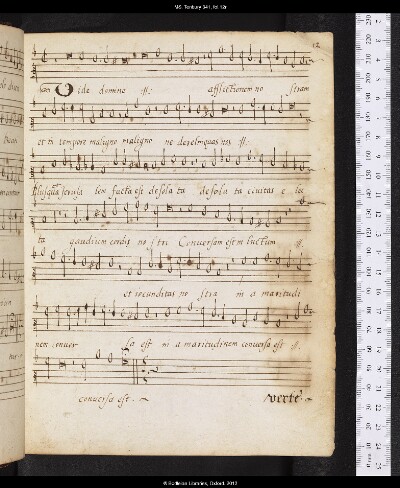 MS. Tenbury 341, fol. 12r
12
Vide domine :||: afflictionem no stram
et in tempore maligno maligno ne derelinquas nos :||:
lem facta est desola ta desola ta civitas e lec
ta gaudium cordis no stri Conversum est in luctum :||:
et iocunditas no stra in a maritudi
nem conver sa est in a maritudinem conversa est :||:
conversa est. verte
© Bodleian Libraries, Oxford, 2012